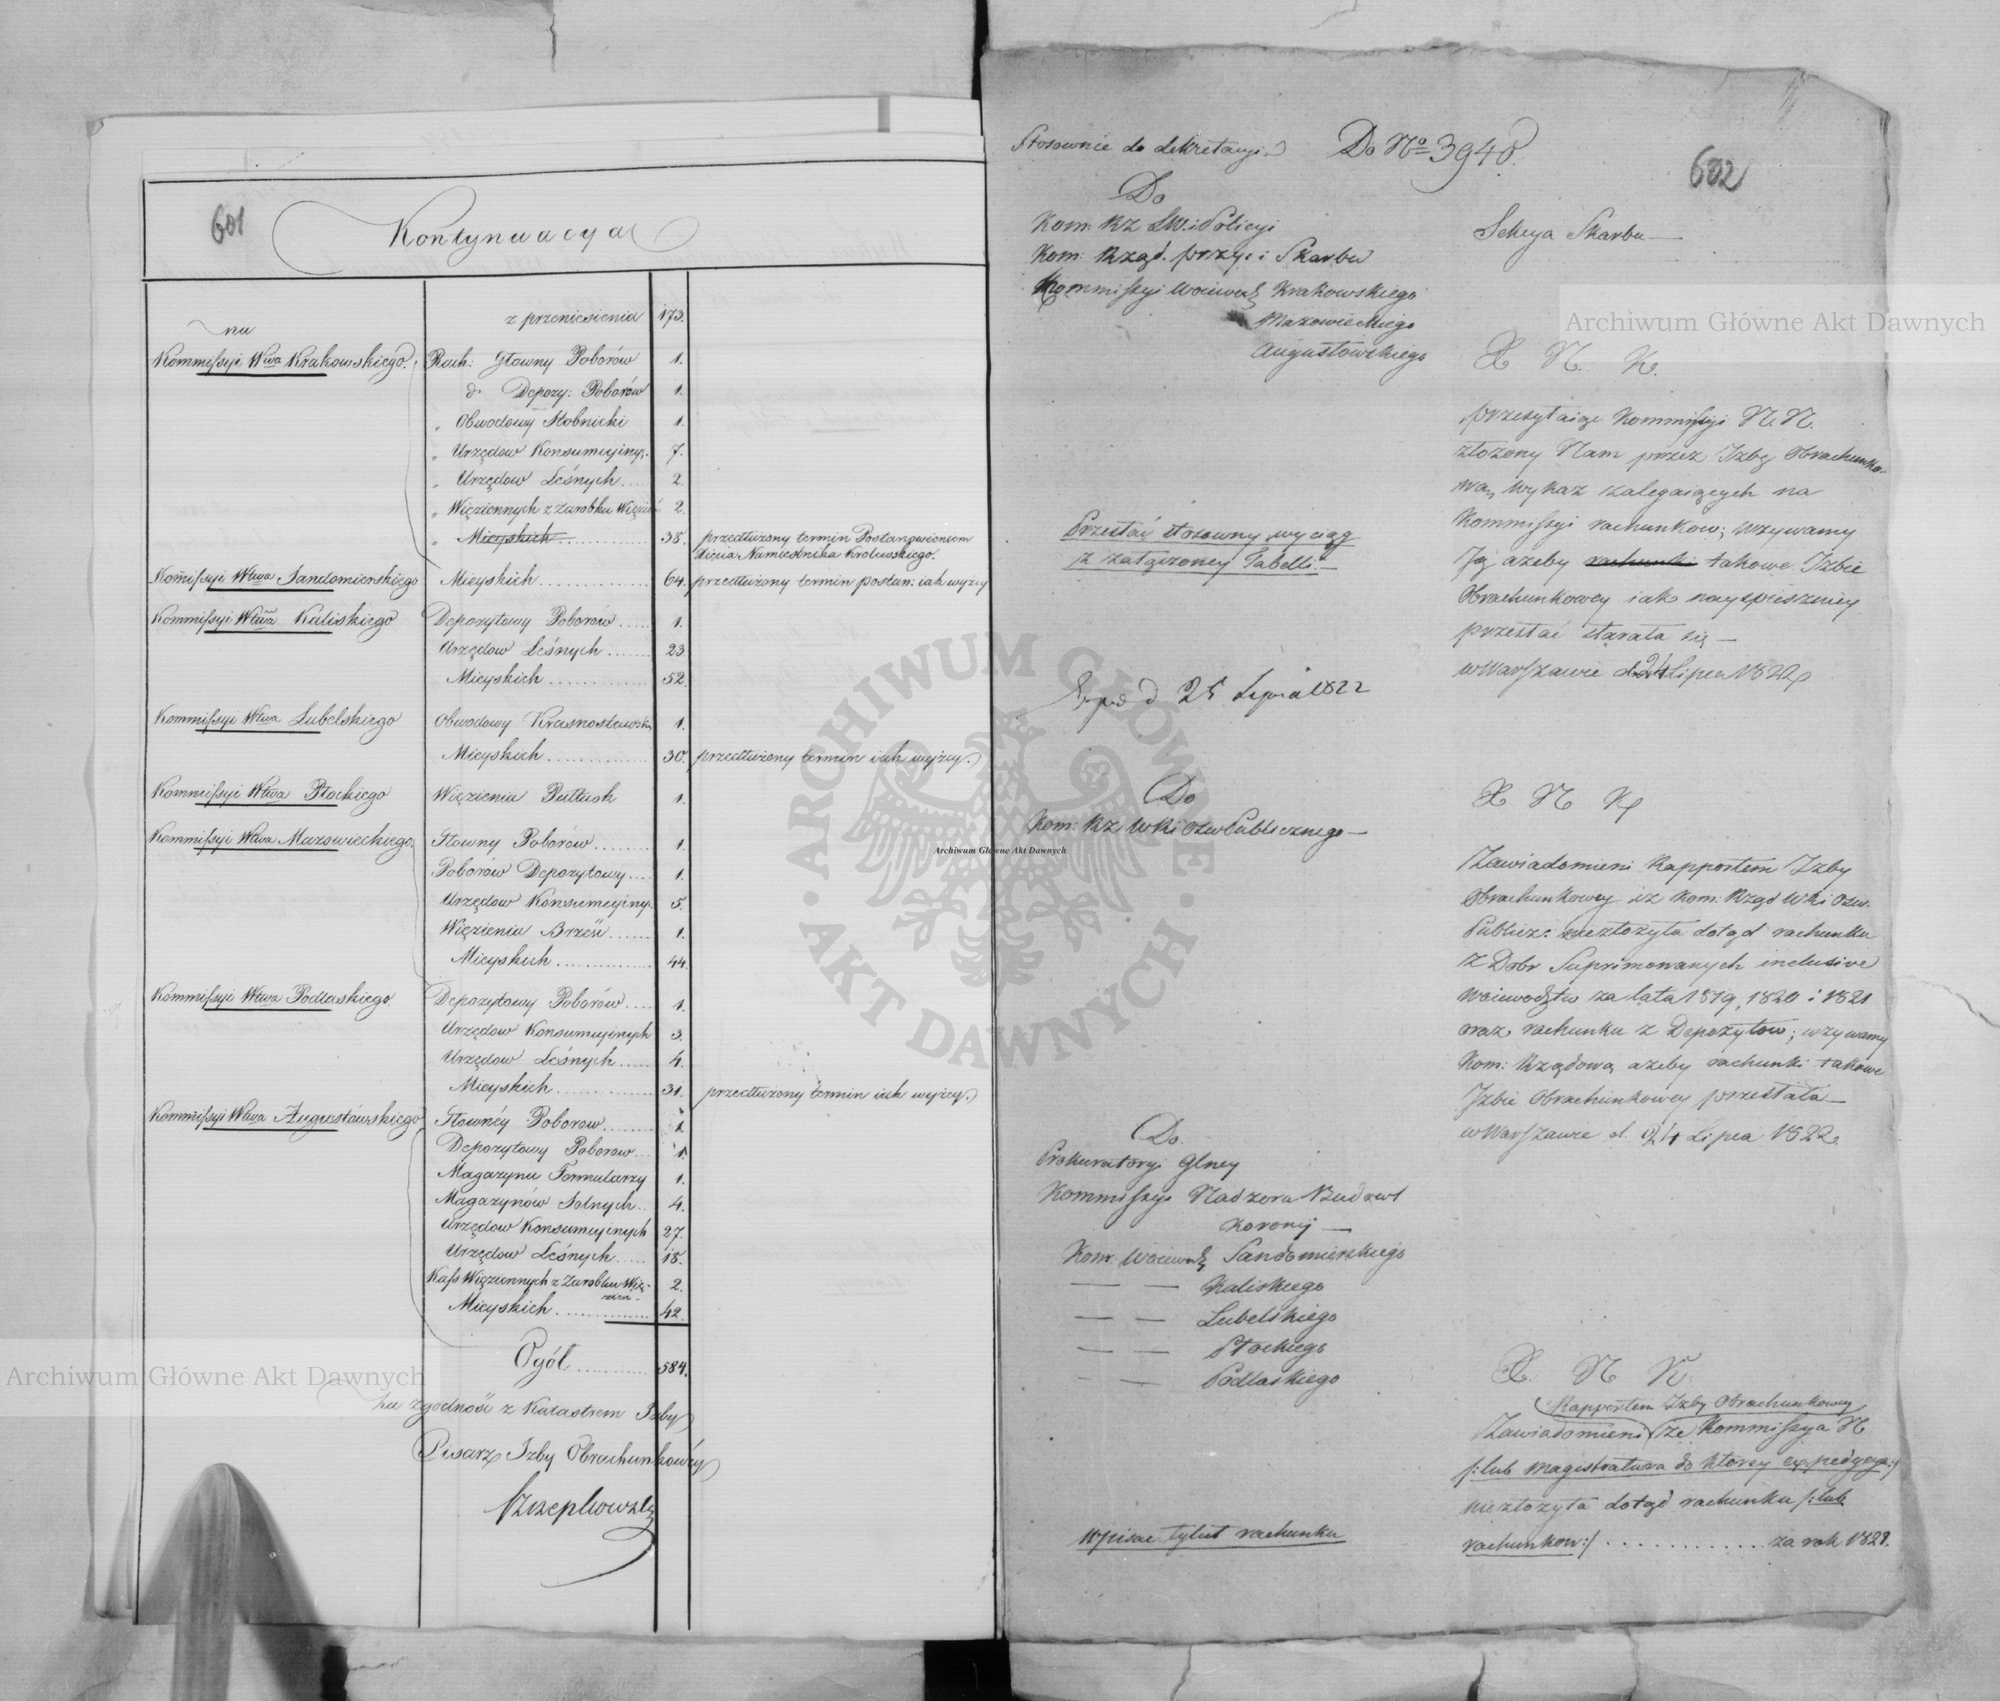 601
Kontynuacya
z przeniesienia 173.
na
Kommissyi Wtwa Krakowskiego. Rach: Głowny Poborów 1.
do Depozy: Poborów 1.
" Obwodowy Stobnicki 1.
" Urzędow Konsumcyiny: 7.
" Urzędow Leśnych .... 2.
" Więziennych z Zarobku Więzień 2.
" Mieyskich ........... 38. przedłużony termin Postanowieniem
Xięcia Namiestnika Krolewskiego.
Kommissyi Wtwa Sandomierskiego Mieyskich ........... 64. przedłużony termin postan: iak wyżey
Kommissyi Wtwa Kaliskiego Depozytowy Poborów ..... 1.
Urzędow Leśnych ....... 23.
Mieyskich ............ 52.
Kommissyi Wtwa Lubelskiego Obwodowy Krasnostawski 1.
Mieyskich ............ 30. przedłużony termin iak wyżey.
Kommissyi Wtwa Płockiego Więzienia Pułtusk 1.
Kommissyi Wtwa Mazowieckiego. Głowny Poborów ........ 1.
Poborów Depozytowy .... 1.
Urzędow Konsumcyiny: 5.
Więzienia Brześć ...... 1.
Mieyskich ............ 44.
Kommissyi Wtwa Podlaskiego. Depozytowy Poborów .... 1.
Urzędow Konsumcyinych 3.
Urzędow Leśnych ..... 4.
Mieyskich ............ 31. przedłużony termin iak wyżey.
Kommissyi Wtwa Augustowskiego Głownéy Poborow ........ 1.
Depozytowy Poborow ... 1.
Magazynu Formularzy 1.
Magazynów Solnych .. 4.
Urzędow Konsumcyinych 27.
Urzędow Leśnych ..... 18.
Kass Więziennych z Zarobku Wię-
zien. 2.
Mieyskich ............ 42.
Ogół .......... 584.
za zgodność z Katastrem Izby
Pisarz Izby Obrachunkowéy
602
Stosownie do dekretacyi Do No 3940.
Do
Kom: Rz SW. i Policyi
Kom: Rząd. przy: i Skarbu
Kommissyi Woiewodz Krakowskiego
Mazowieckiego
Augustowskiego
Sekcya Skarbu
X N. K.
przesyłaiąc Kommissyi N. N.
złożony Nam przez Izbę Obrachunko-
wą, wykaz zalegaiących na
Kommissyi rachunkow; wzywamy
Ją ażeby rachunki takowe Izbie
Obrachunkowey iak nayspieszniey
przesłać starała się
w Warszawie d. 24 Lipca 1822
Przesłać stosowny wyciąg
z załączoney Tabelli.
Exped d 25 Lipca 1822
Do
Kom: Rz. WR i Ośw Publicznego
X N K
Zawiadomieni Rapportem Izby
Obrachunkowey iż Kom: Rząd WR i Ośw.
Publicz: niezłożyła dotąd rachunku
z Dobr Suprimowanych inclusive
Woiewodztw za lata 1819, 1820 i 1821
oraz rachunku z Depozytow; wzywamy
Kom: Rządową ażeby rachunki takowe
Izbie Obrachunkowey przesłała
w Warszawie d. 24 Lipca 1822.
Do.
Prokuratoryi Głney
Kommissyi Nadzoru Budowl
Korony
Kom: Woiewodz Sandomierskiego
— — Kaliskiego
— — Lubelskiego
— — Płockiego
— — Podlaskiego
X. N K
Rapportem Izby Obrachunkowey
Zawiadomieni że Kommissya N
/:lub Magistratura do ktorey expedycya:/
niezłożyła dotąd rachunku /:lub
rachunkow:/ ............. za rok 1821.
wpisac tytuł rachunku
Archiwum Główne Akt Dawnych
Archiwum Główne Akt Dawnych
Archiwum Główne Akt Dawnych
ARCHIWUM GŁÓWNE AKT DAWNYCH